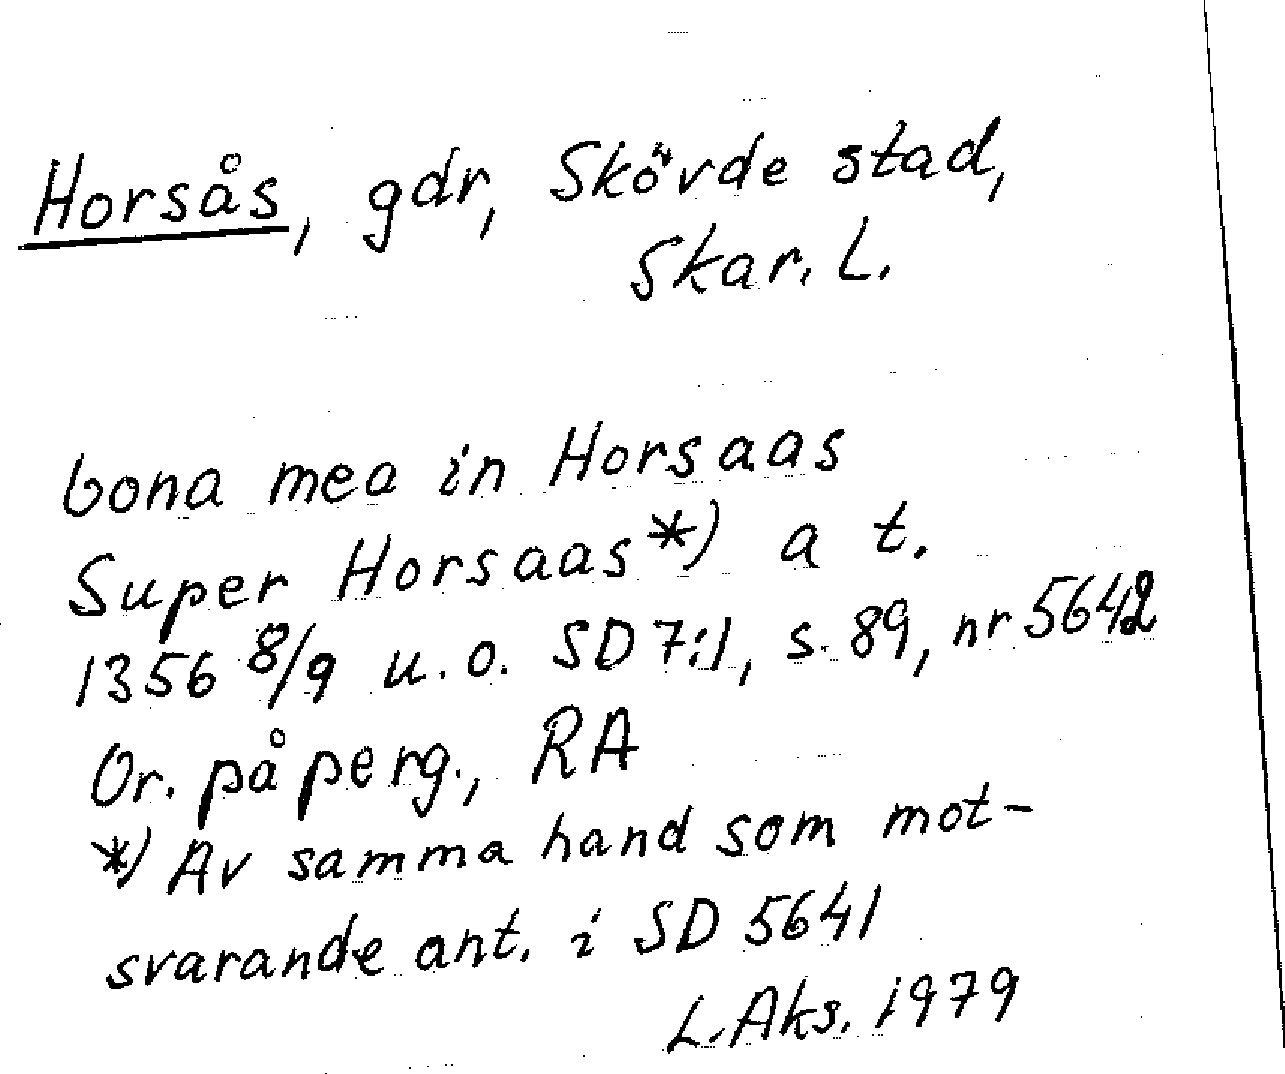 Horsås, gdr, Skövde stad,
Skar. L.
bona mea in Horsaas
Super Horsaas*) a t.
1356 8/9 u.o. SD 7:1, s. 89, nr 5642
Or. på perg., RA
*) Av samma hand som mot-
svarande ant. i SD 5641
L. Aks. 1979